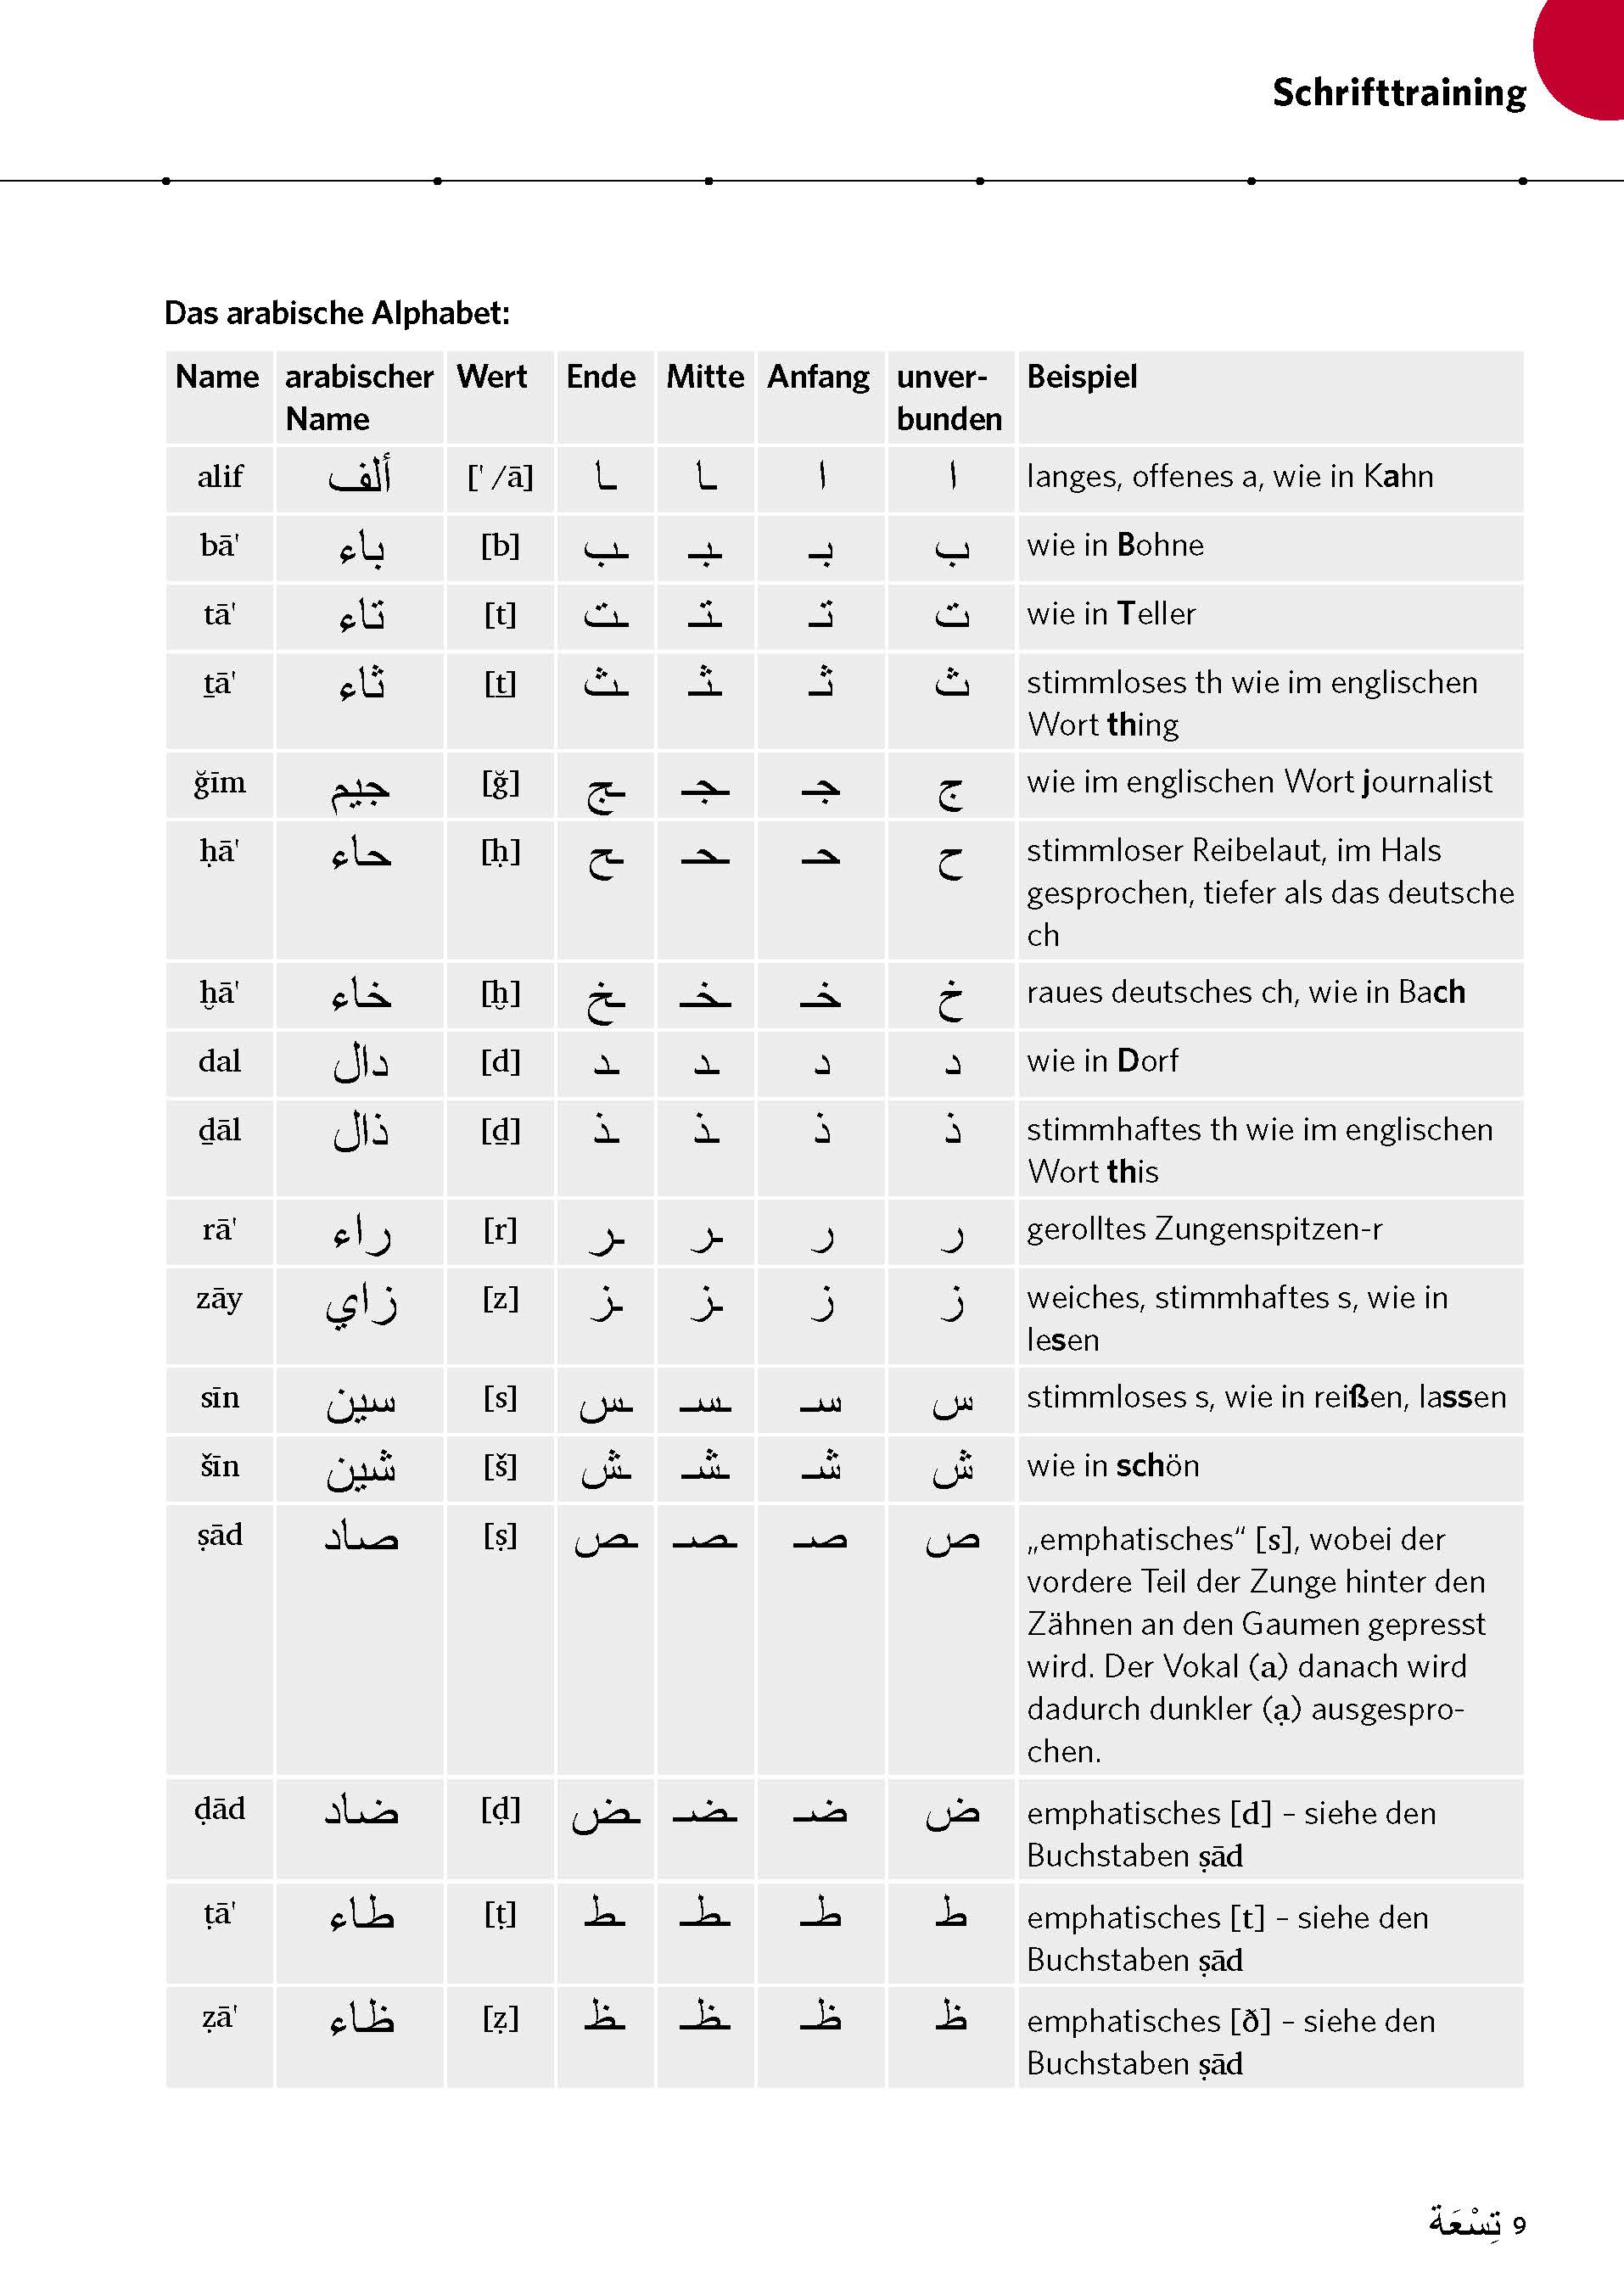 Schrifttraining
Das arabische Alphabet:
Name arabischer Wert Ende Mitte Anfang unver- Beispiel
Name bunden
alif ألف [' /ā] ـا ـا ا ا langes, offenes a, wie in Kahn
bā' باء [b] ـب ـبـ بـ ب wie in Bohne
tā' تاء [t] ـت ـتـ تـ ت wie in Teller
ṯā' ثاء [ṯ] ـث ـثـ ثـ ث stimmloses th wie im englischen
Wort thing
ğīm جيم [ğ] ـج ـجـ جـ ج wie im englischen Wort journalist
ḥā' حاء [ḥ] ـح ـحـ حـ ح stimmloser Reibelaut, im Hals
gesprochen, tiefer als das deutsche
ch
ḫā' خاء [ḫ] ـخ ـخـ خـ خ raues deutsches ch, wie in Bach
dal دال [d] ـد ـد د د wie in Dorf
ḏāl ذال [ḏ] ـذ ـذ ذ ذ stimmhaftes th wie im englischen
Wort this
rā' راء [r] ـر ـر ر ر gerolltes Zungenspitzen-r
zāy زاي [z] ـز ـز ز ز weiches, stimmhaftes s, wie in
lesen
sīn سين [s] ـس ـسـ سـ س stimmloses s, wie in reißen, lassen
šīn شين [š] ـش ـشـ شـ ش wie in schön
ṣād صاد [ṣ] ـص ـصـ صـ ص „emphatisches“ [s], wobei der
vordere Teil der Zunge hinter den
Zähnen an den Gaumen gepresst
wird. Der Vokal (a) danach wird
dadurch dunkler (ạ) ausgespro-
chen.
ḍād ضاد [ḍ] ـض ـضـ ضـ ض emphatisches [d] – siehe den
Buchstaben ṣād
ṭā' طاء [ṭ] ـط ـطـ طـ ط emphatisches [t] – siehe den
Buchstaben ṣād
ẓā' ظاء [ẓ] ـظ ـظـ ظـ ظ emphatisches [ð] – siehe den
Buchstaben ṣād
تِسْعَة 9